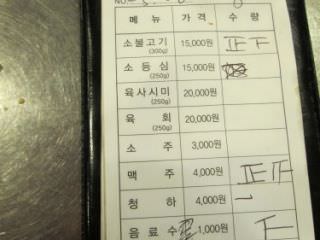 NO.
메 뉴 가 격 수 량
소불고기 (300g) 15,000원 正 下
소 등 심 (250g) 15,000원
육사시미 (250g) 20,000원
육 회 (250g) 20,000원
소 주 3,000원
맥 주 4,000원 正 正
청 하 4,000원 一
음 료 수 1,000원 下